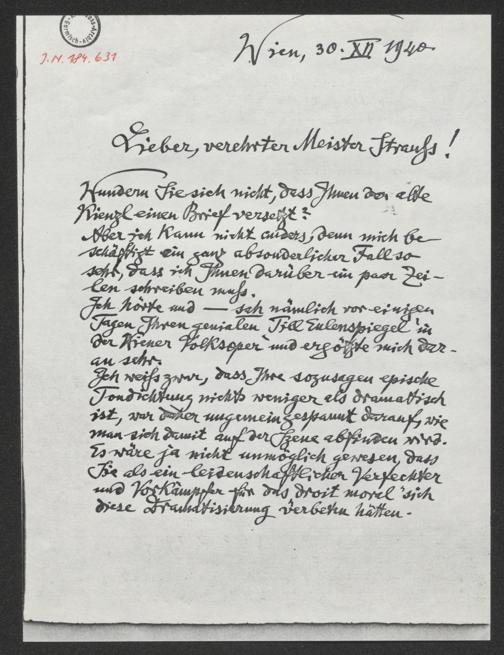 J.N. 184.631
Wien, 30. XII 1940
Lieber, verehrter Meister Strauß!
Wundern Sie sich nicht, dass Ihnen der alte
Kienzl einen Brief versetzt?
Aber ich kann nicht anders, denn mich be-
schäftigt ein ganz absonderlicher Fall so
sehr, dass ich Ihnen darüber ein paar Zei-
len schreiben muß.
Ich hörte und — sah nämlich vor einigen
Tagen Ihren genialen "Till Eulenspiegel" in
der Wiener "Volksoper" und ergötzte mich dar-
an sehr.
Ich weiß zwar, dass Ihre sozusagen epische
Tondichtung nichts weniger als dramatisch
ist, war daher ungemein gespannt darauf, wie
man sich damit auf der Szene abfinden wird.
Es wäre ja nicht unmöglich gewesen, dass
Sie als ein leidenschaftlicher Verfechter
und Vorkämpfer für das "droit moral" sich
diese Dramatisierung verbeten hätten.